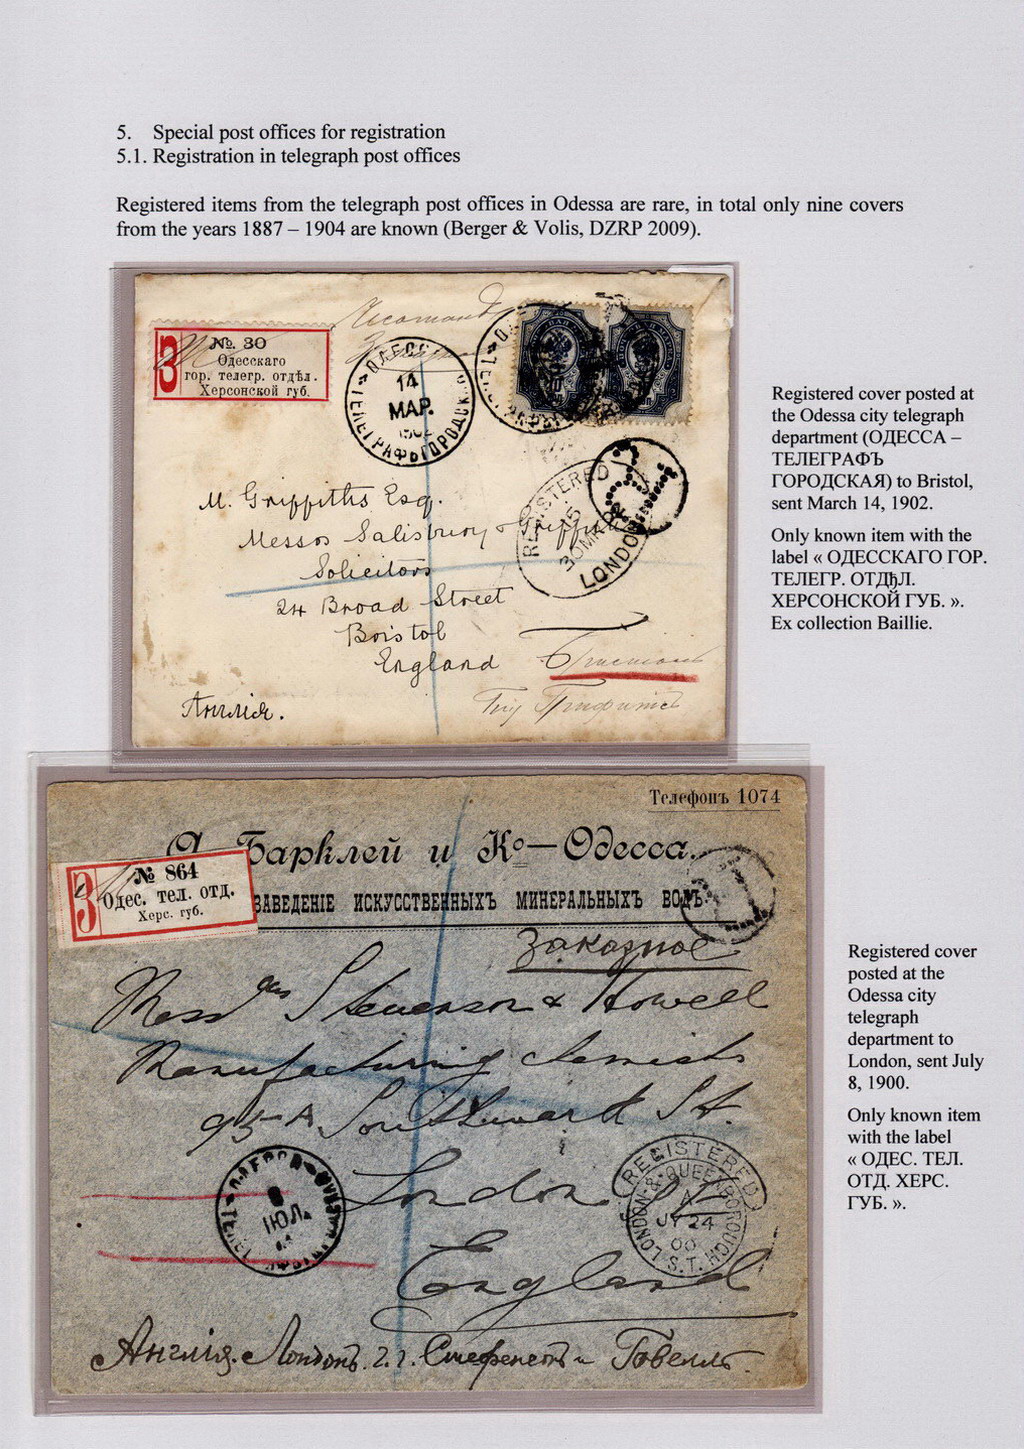 5. Special post offices for registration
5.1. Registration in telegraph post offices
Registered items from the telegraph post offices in Odessa are rare, in total only nine covers
from the years 1887 – 1904 are known (Berger & Volis, DZRP 2009).
З
№. 30
Одесскаго
гор. телегр. отдѣл.
Херсонской губ.
14
МАР.
REGISTERED
15
30MR02
LONDON
M. Griffiths Esq.
Messrs Salisbury & Griffiths
Solicitors
24 Broad Street
Bristol
England
Англія.
Registered cover posted at
the Odessa city telegraph
department (ОДЕССА –
ТЕЛЕГРАФЪ
ГОРОДСКАЯ) to Bristol,
sent March 14, 1902.
Only known item with the
label « ОДЕССКАГО ГОР.
ТЕЛЕГР. ОТДђЛ.
ХЕРСОНСКОЙ ГУБ. ».
Ex collection Baillie.
Телефонъ 1074
Барклей и Ко – Одесса.
ЗАВЕДЕНІЕ ИСКУССТВЕННЫХЪ МИНЕРАЛЬНЫХЪ ВОДЪ.
З
№ 864
Одес. тел. отд.
Херс. губ.
Заказное
Messrs Stevenson & Howell
Manufacturing Chemists
95-A Southwark St.
London
England
ІЮЛ.
REGISTERED
LONDON & QUEENBOROUGH
JY 24
00
S.T.
Англія. Лондонъ. г.г. Стефенсонъ и Говеллъ.
Registered cover
posted at the
Odessa city
telegraph
department to
London, sent July
8, 1900.
Only known item
with the label
« ОДЕС. ТЕЛ.
ОТД. ХЕРС.
ГУБ. ».